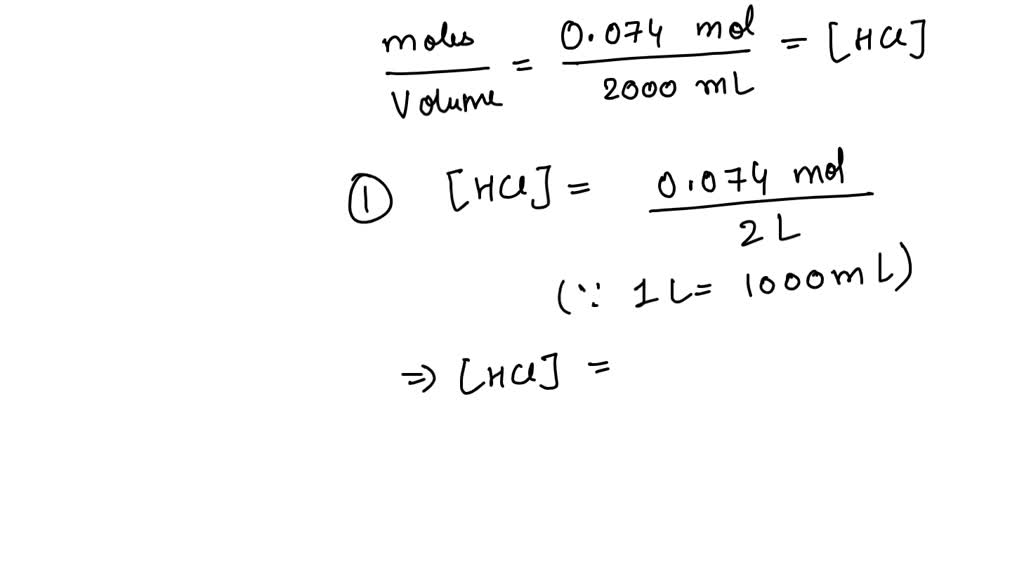 moles / Volume = 0.074 mol / 2000 mL = [HCl]
① [HCl] = 0.074 mol / 2 L
(∵ 1 L = 1000 mL)
⇒ [HCl] =